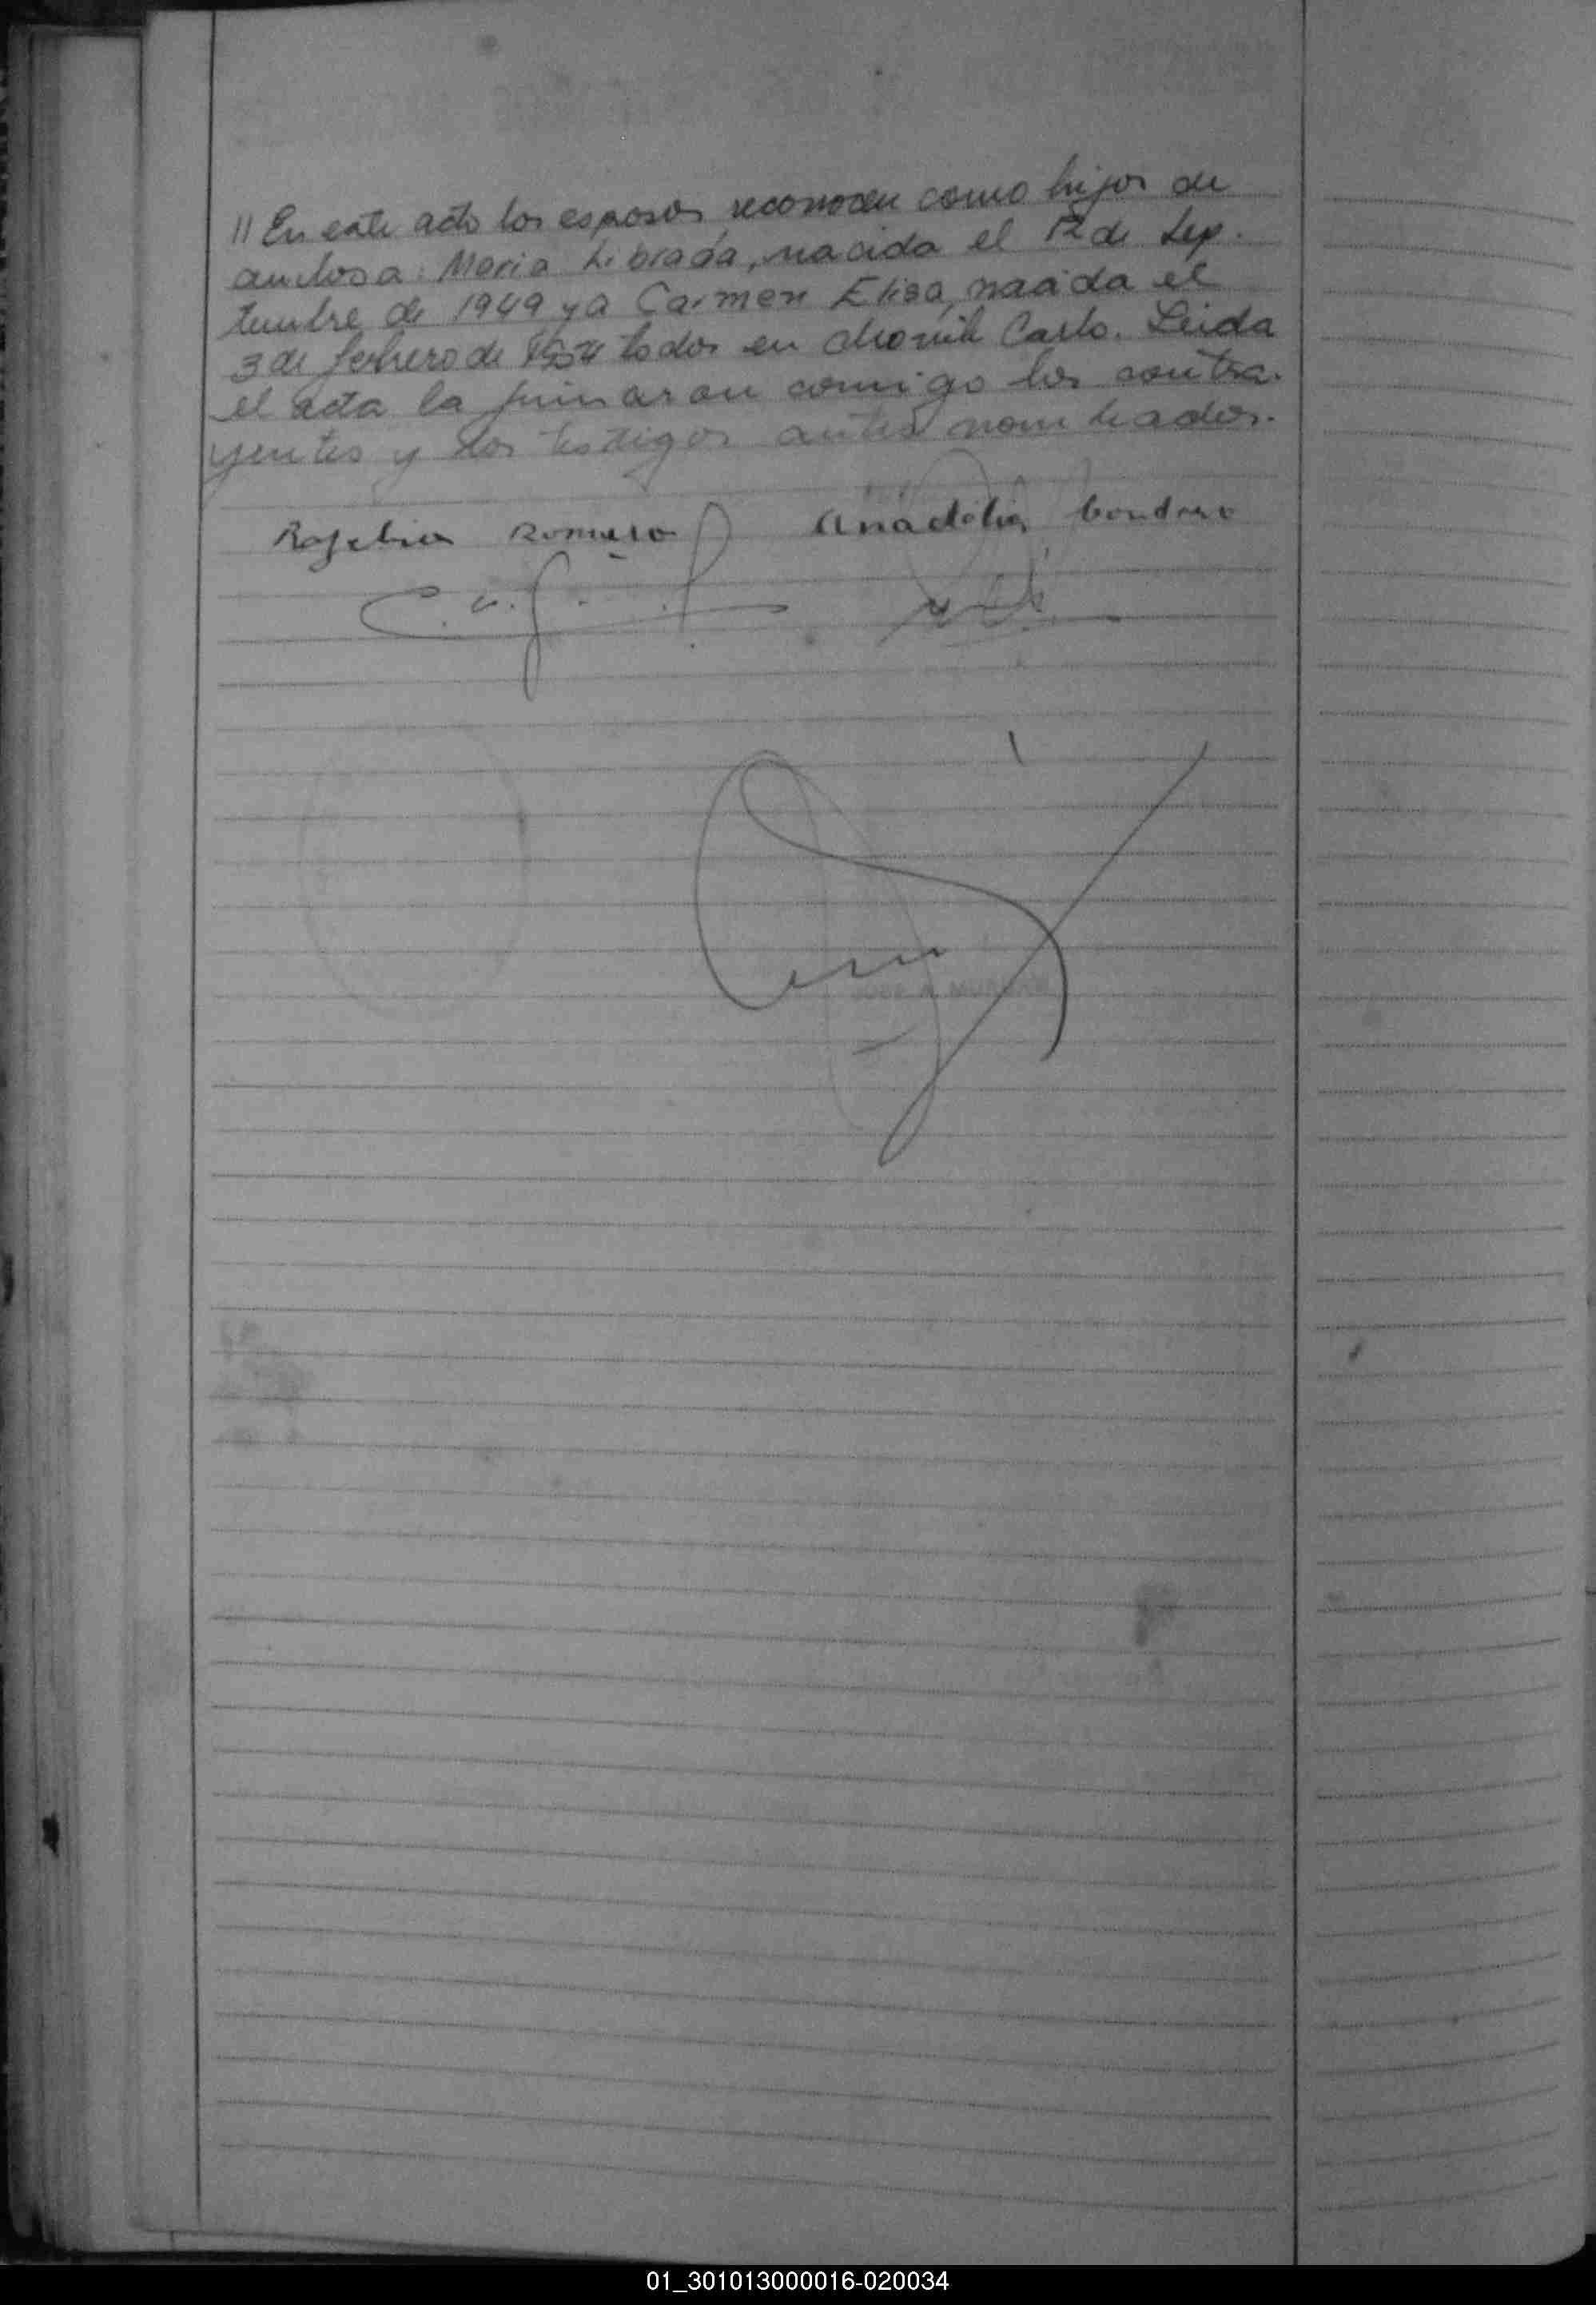 // En este acto los esposos reconocen como hijos de
ambos a: Maria Librada, nacida el 12 de Sep-
tiembre de 1949 y a Carmen Elisa, nacida el
3 de febrero de todos en Casto. Leida
el acta la firmaron comigo los contra-
yentes y los testigos antes nombrados.-
Romero Anadelia
JOSE A.
01_301013000016-020034